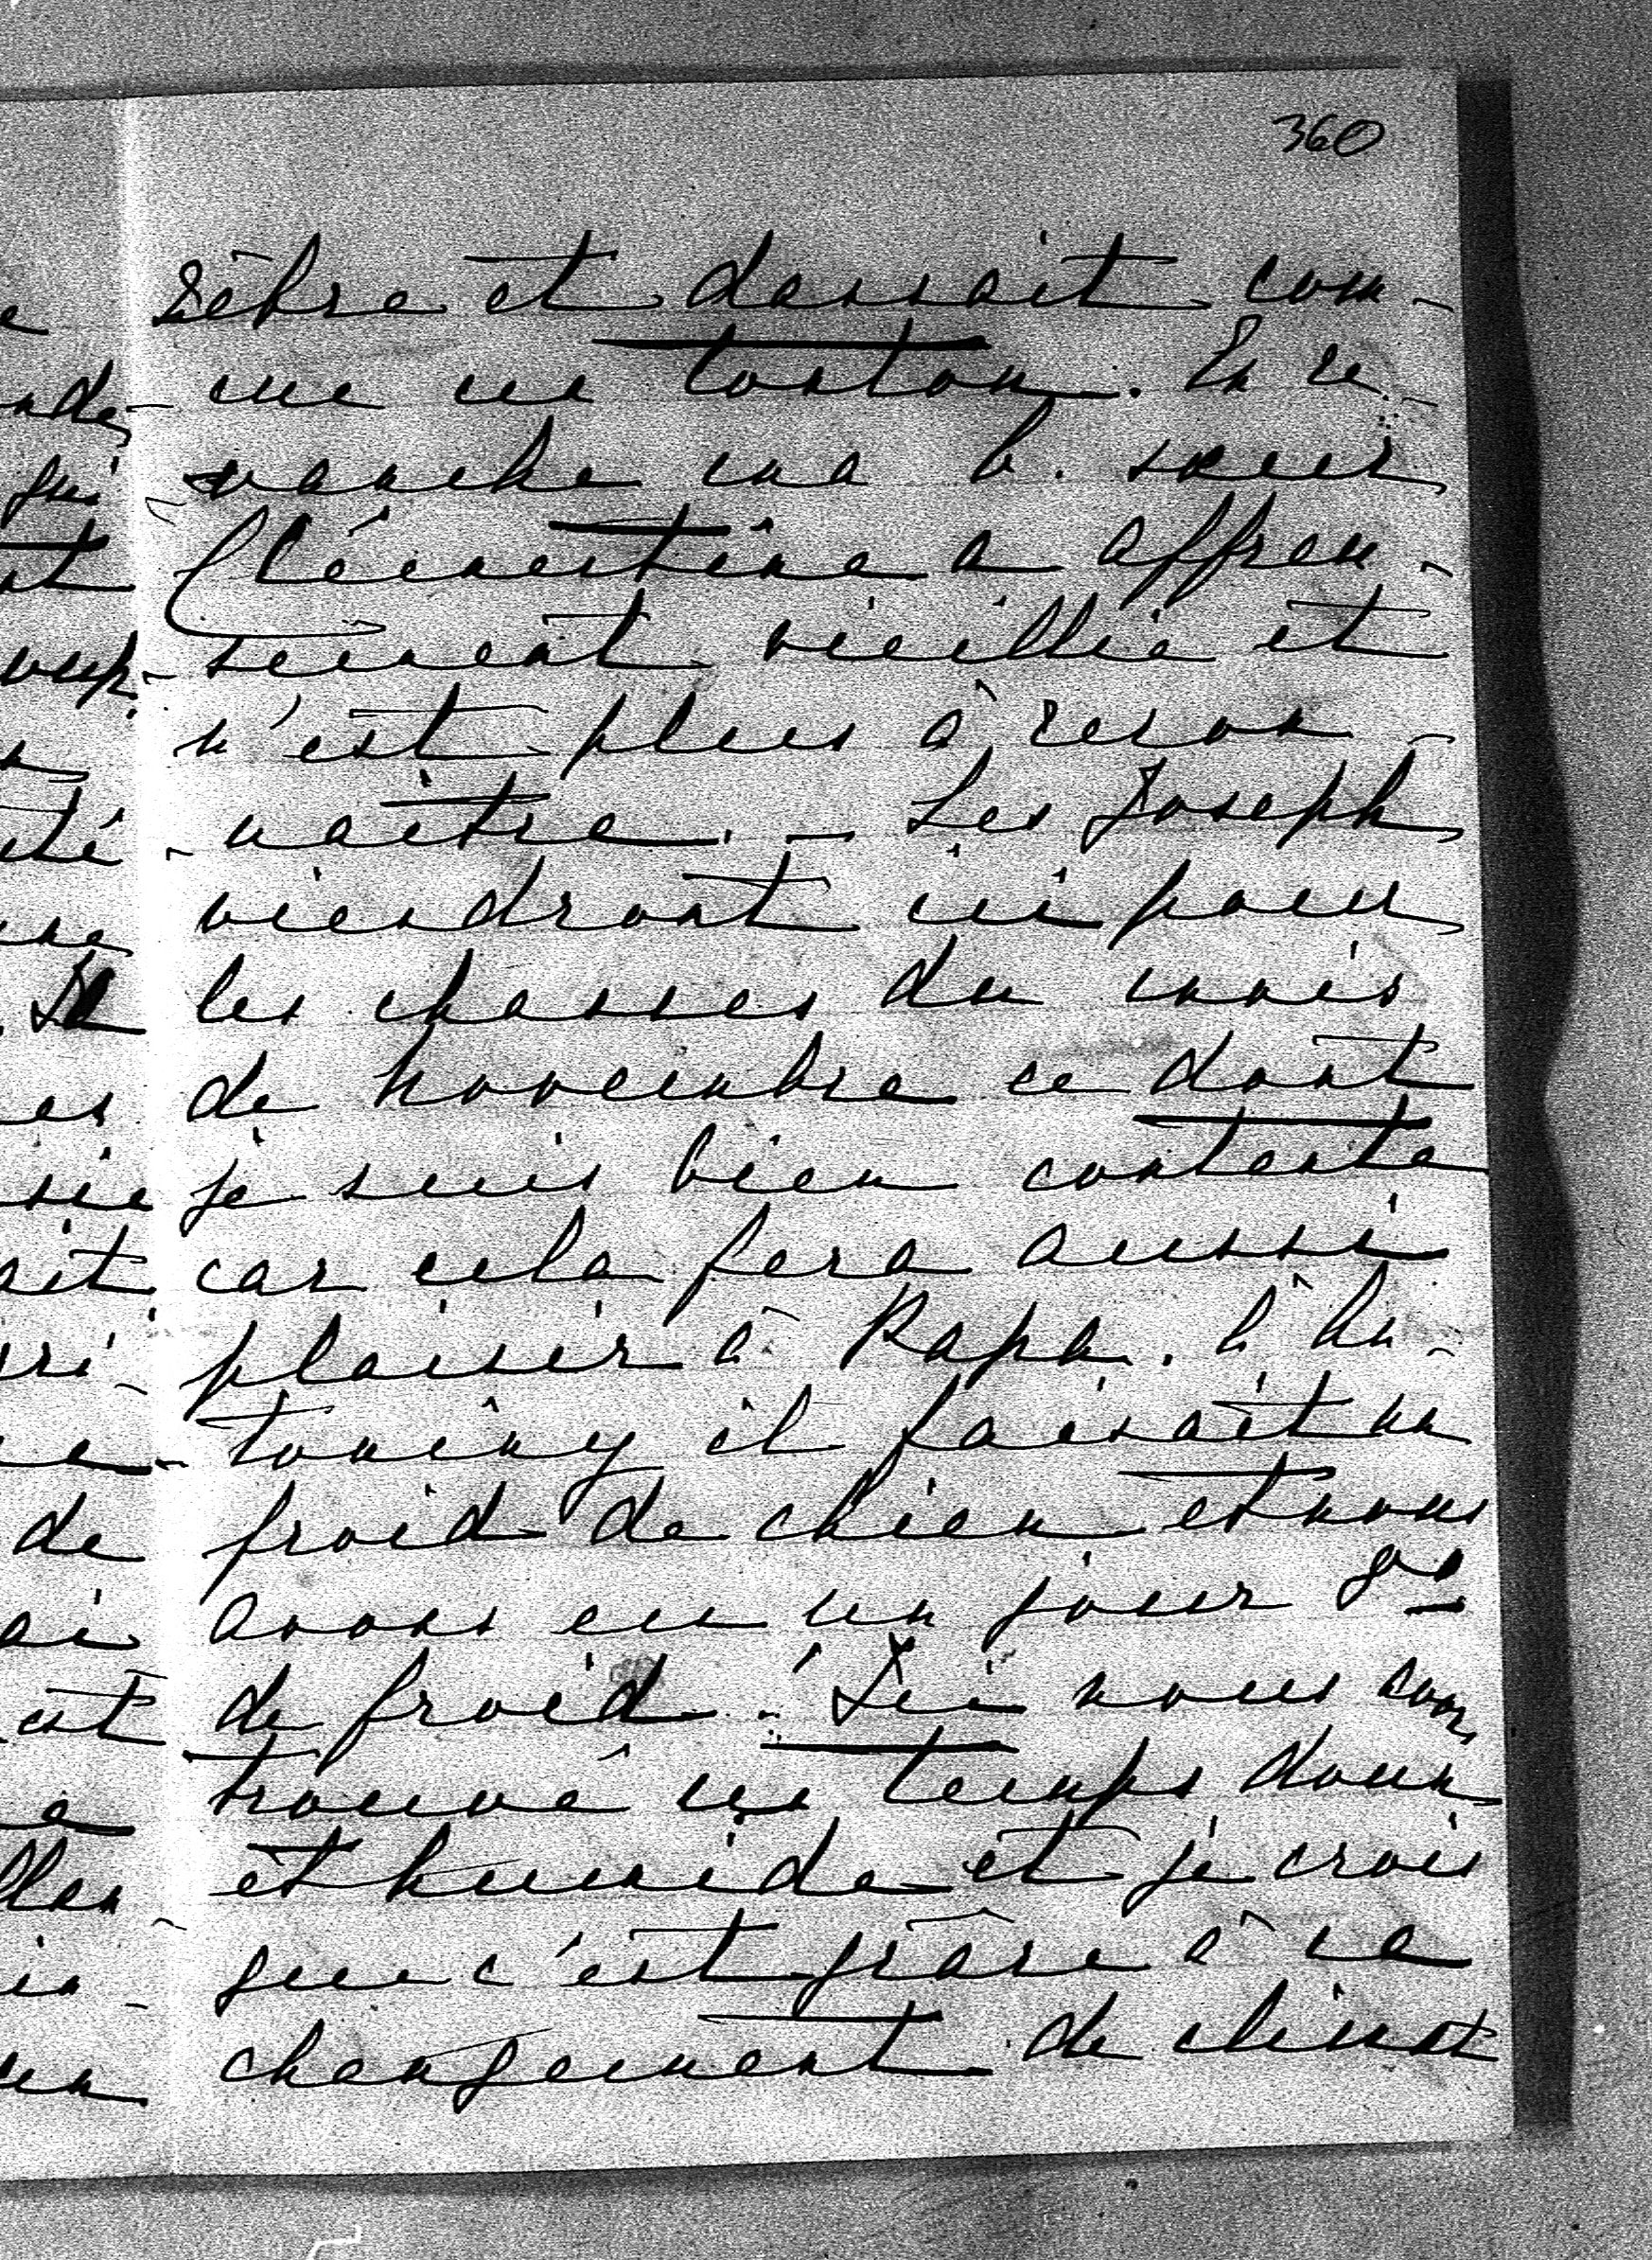 360
zèbre et dansait com-
me un tonton. En re-
-vanche ma b. sœur
Clémentine a affreu-
-sement vieillie et
n'est plus à recon-
-naître. — Les Joseph
viendront ici pour
les chasses du mois
de novembre ce dont
je suis bien contente
car cela fera aussi
plaisir à Papa. à An-
-toniny il faisait un
froid de chien et nous
avons eu un jour 8°
de froid. Ici nous avons
trouvé un temps doux
et humide et je crois
que c'est grâce à ce
changement de climat